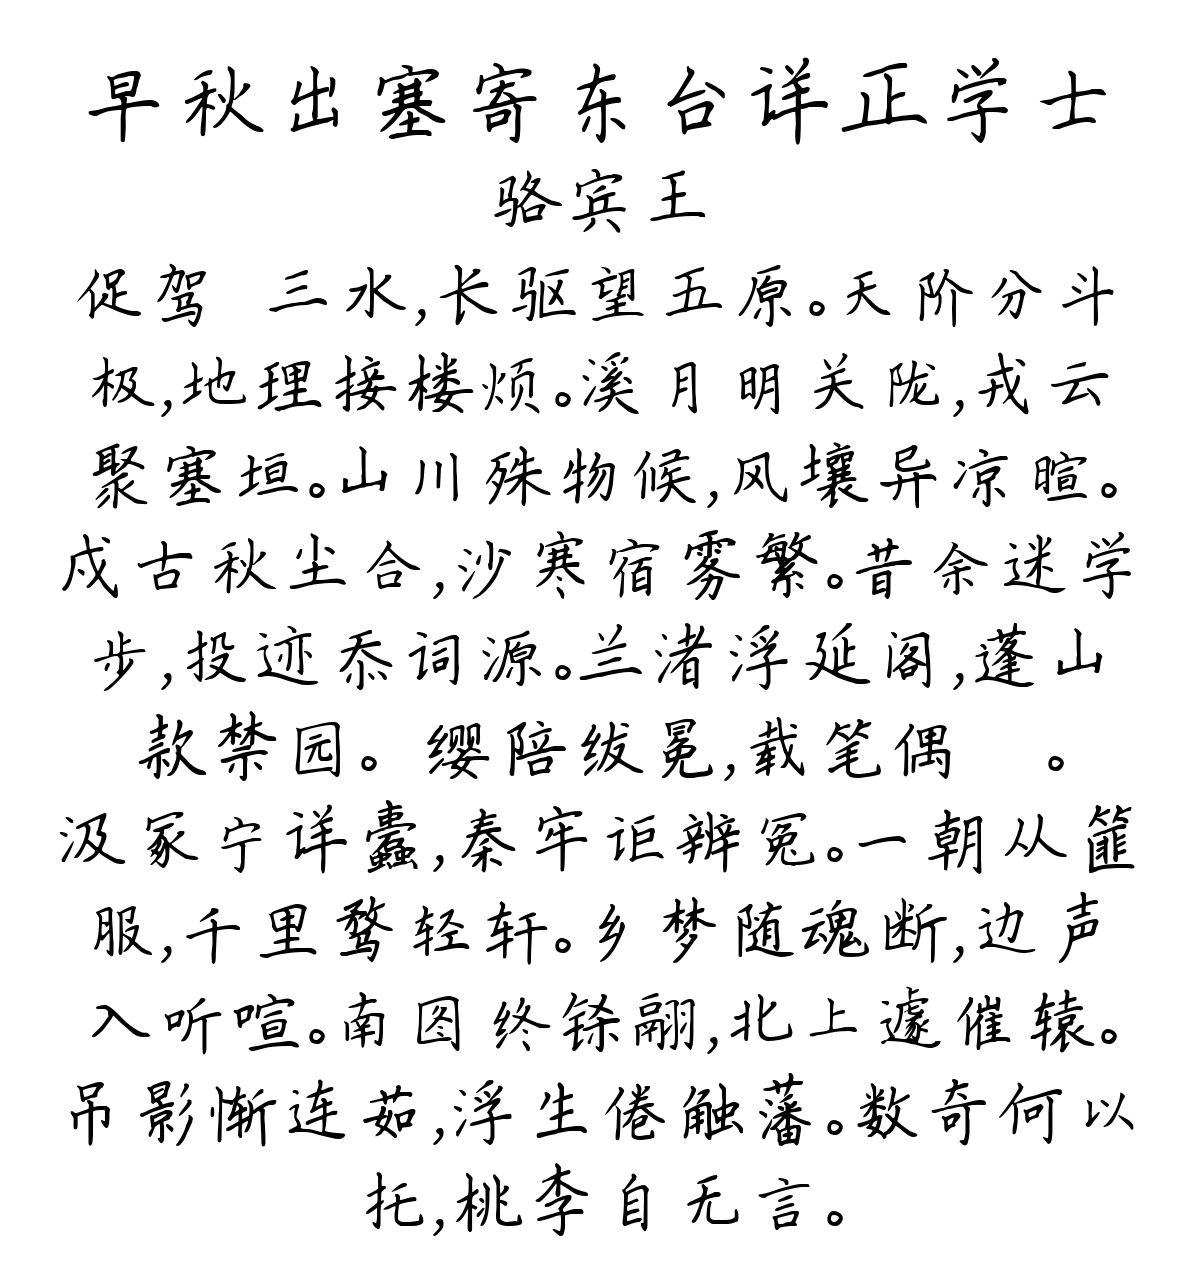 早秋出塞寄东台详正学士
骆宾王
促驾 三水,长驱望五原。天阶分斗
极,地理接楼烦。溪月明关陇,戎云
聚塞垣。山川殊物候,风壤异凉暄。
戍古秋尘合,沙寒宿雾繁。昔余迷学
步,投迹忝词源。兰渚浮延阁,蓬山
款禁园。缨陪绂冕,载笔偶 。
汲冢宁详蠹,秦牢讵辨冤。一朝从篚
服,千里骛轻轩。乡梦随魂断,边声
入听喧。南图终铩翮,北上遽催辕。
吊影惭连茹,浮生倦触藩。数奇何以
托,桃李自无言。